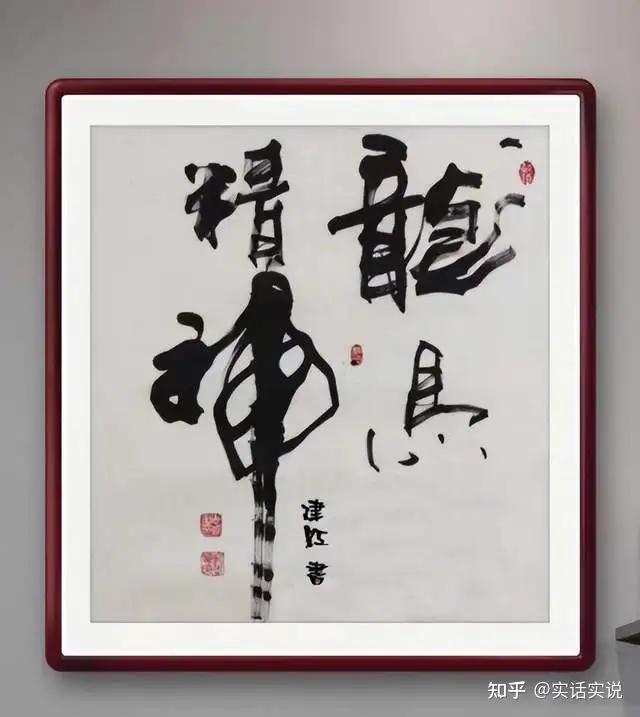 龍馬
精神
建 書
知乎 @实话实说